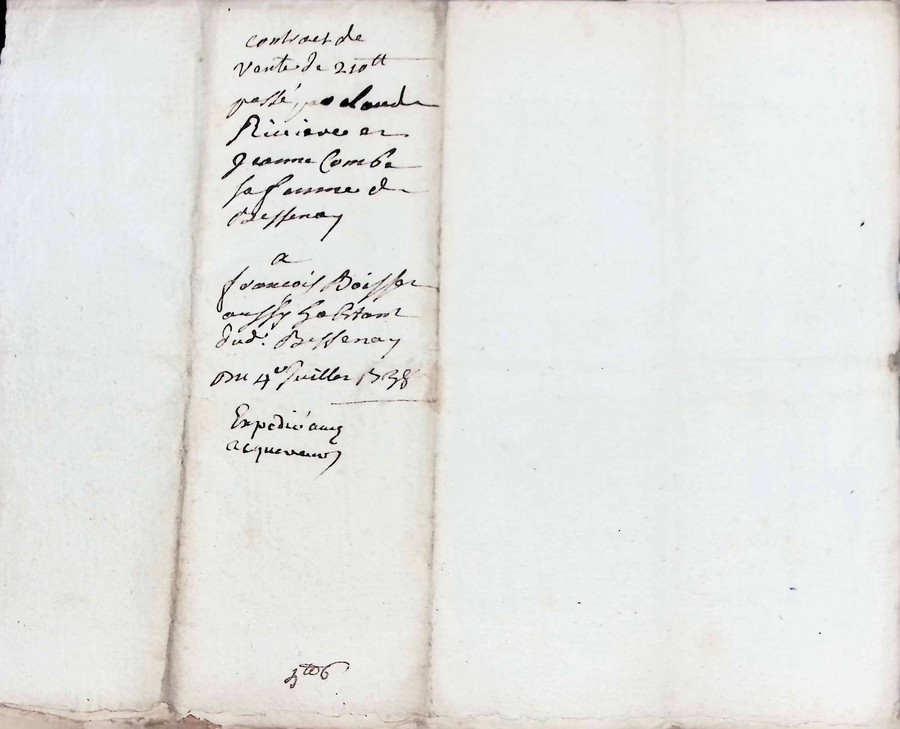 contract de
vante de 210tt
passé, par claude
Riuiere et
Jeanne Combe
sa femme de
Bessenay
a
françois Boisset
aussy habitant
dud. Bessenay
Du 4e Juillet
Expedié aux
acquereurs